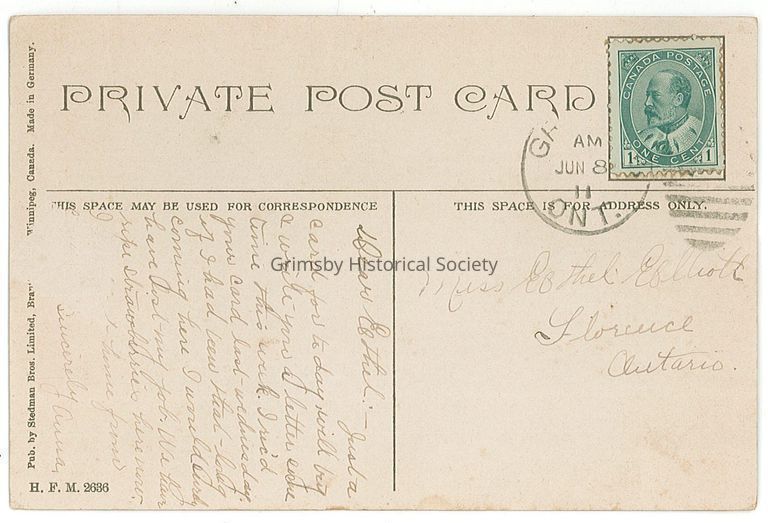 PRIVATE POST CARD
CANADA POSTAGE
1 ONE CENT 1
GA
AM
JUN 8
11
ONT.
THIS SPACE MAY BE USED FOR CORRESPONDENCE
THIS SPACE IS FOR ADDRESS ONLY.
Grimsby Historical Society
Miss Ethel Elliott
Florence
Ontario.
Dear Ethel:- Just a
card for to-day will try
& write you a letter some
time this week. I rec'd
your card last Wednesday.
if I had seen that lady
coming here I would surely
have lost my job. We have
ripe strawberries here now.
& home grown
Sincerely Anna,
Pub. by Stedman Bros. Limited, Winnipeg, Canada. Made in Germany.
H. F. M. 2636